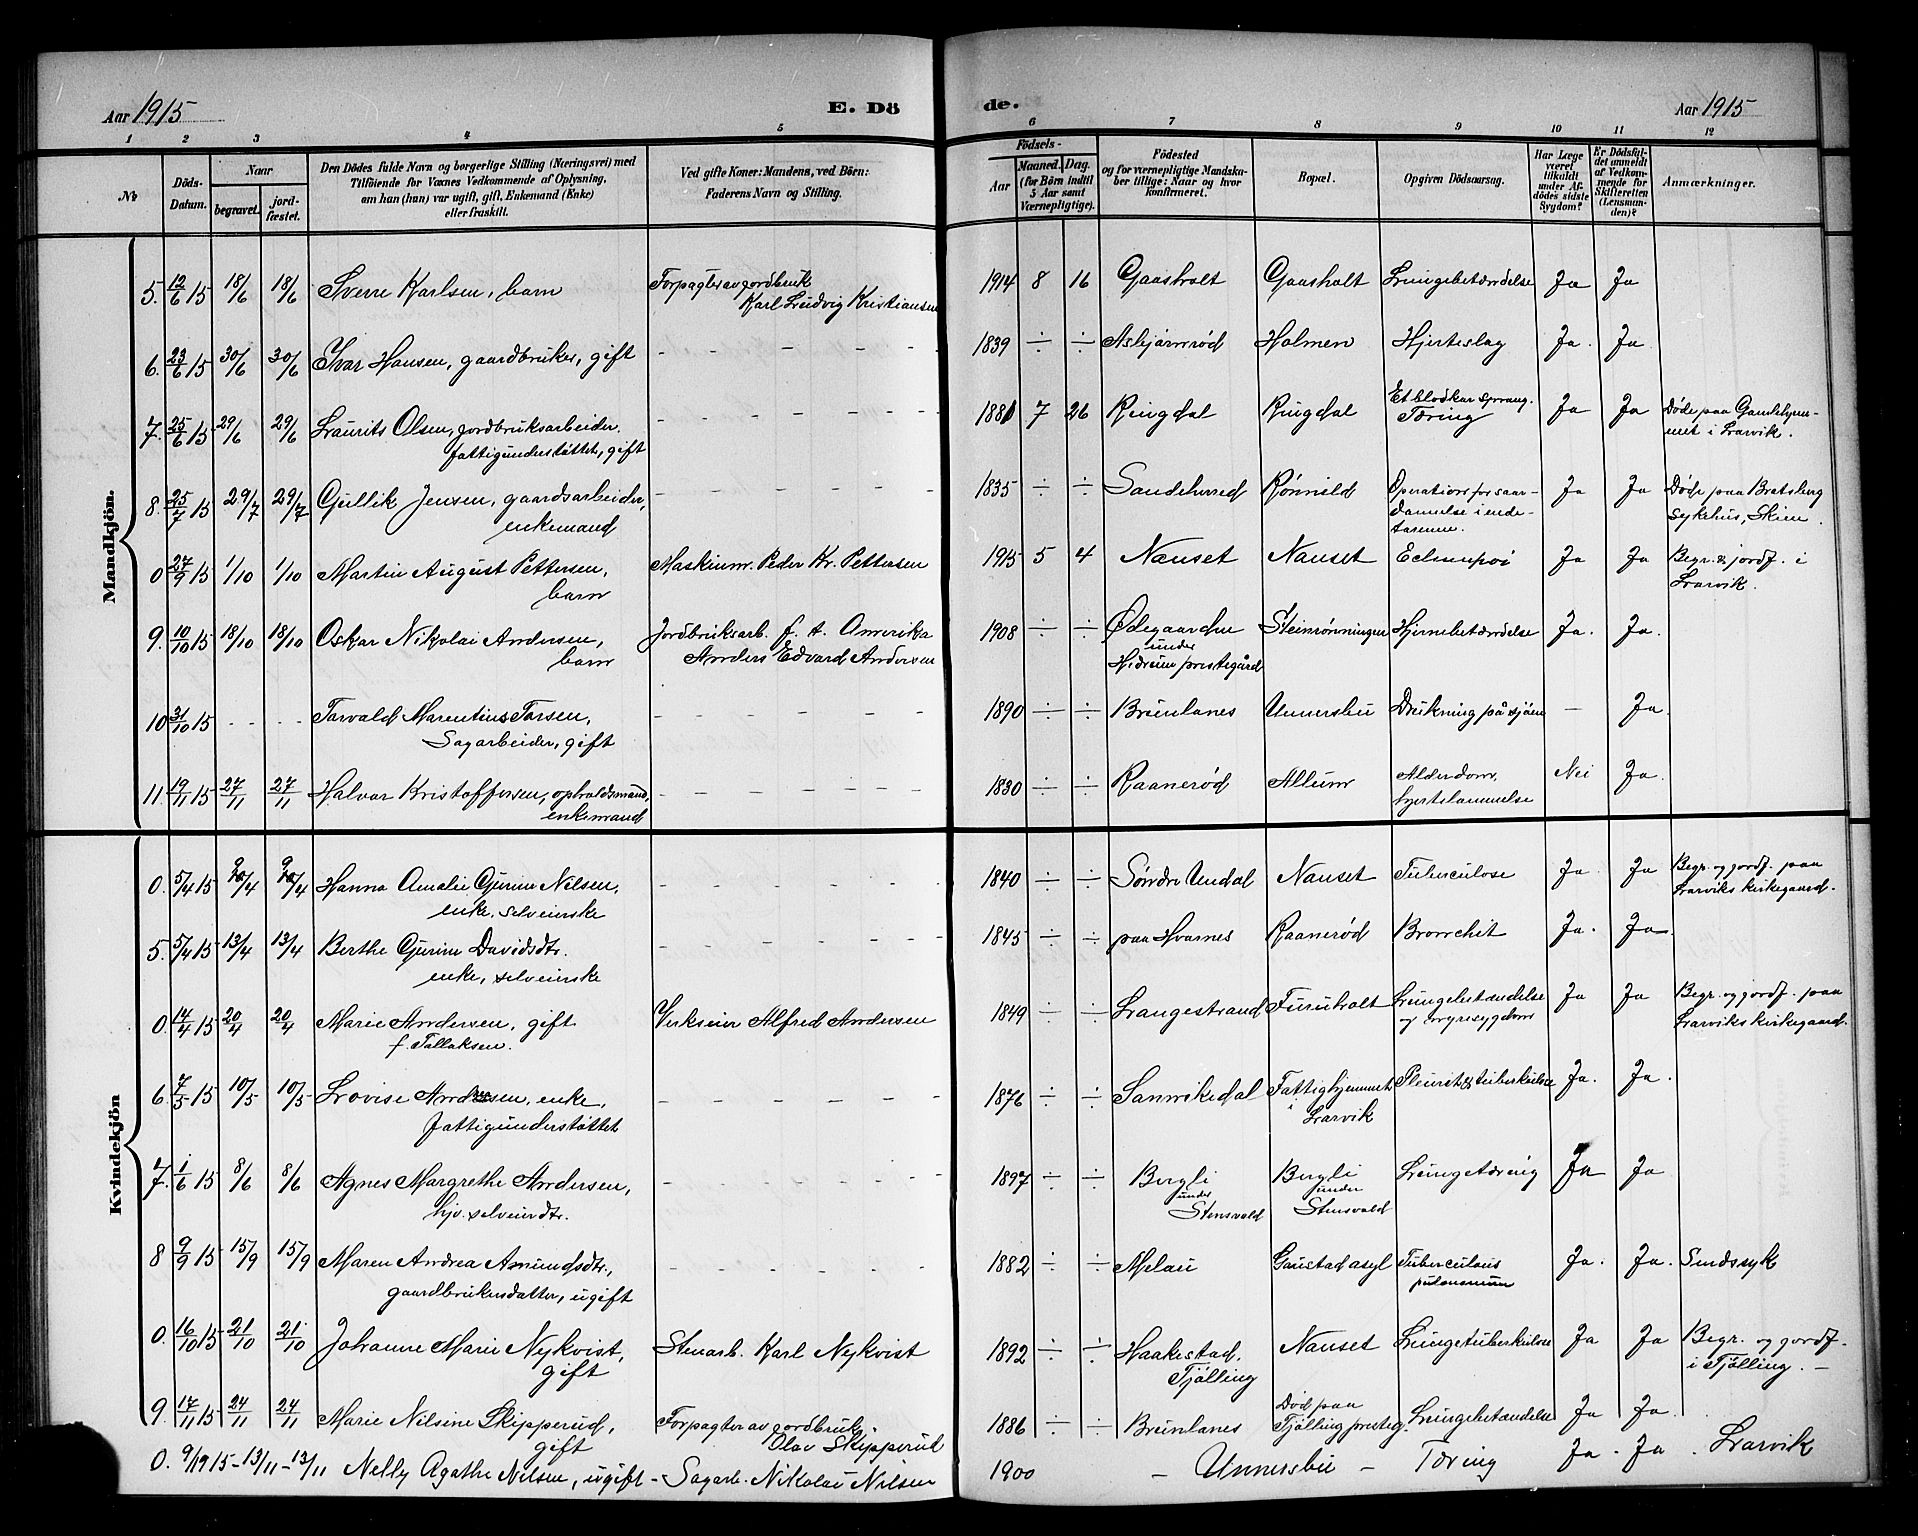 Aar 1915 E. Dö
de. Aar 1915
1 2 3 4 5 6 7 8 9 10 11 12
No
Döds-Datum.
Naar
begravet.
jordfæstet.
Den Dödes fulde Navn og borgerlige Stilling (Næringsvei) med
Tilföiende for Voxnes Vedkommende af Oplysning,
om han (hun) var ugift, gift, Enkemand (Enke)
eller fraskilt.
Ved gifte Koner: Mandens, ved Börn:
Faderens Navn og Stilling.
Födsels-
Aar
Maaned. Dag.
(for Börn indtil
5 Aar samt
Værnepligtige).
Födested
og for værnepligtige Mandskaber tillige: Naar og hvor
konfirmeret.
Bopæl.
Opgiven Dödsaarsag.
Har Læge
været
tilkaldt
under Afdödes sidste
Sygdom?
Er Dödsfaldet anmeldt
af Vedkommende for
Skifteretten
(Lensmanden)?
Anmærkninger.
Mandkjön.
5. 12/6 15 18/6 18/6 Sverre Karlsen, barn Forpagter av jordbruk
Karl Ludvig Kristiansen 1914 8 16 Gaasholt Gaasholt Lungebetændelse Ja Ja
6. 23/6 15 30/6 30/6 Ivar Hansen, gaardbruker, gift - - - - 1839 ÷ ÷ Asbjørnrød Holmen Hjerteslag Ja. Ja.
7. 25/6 15 29/6 29/6 Laurits Olsen, jordbruksarbeider.
fattigunderstøttet, gift - - - - 1881 7 26 Ringdal Ringdal Et blodkar sprang.
Tæring Ja Ja Døde paa Gamlehjemmet i Larvik.
8. 25/7 15 29/7 29/7 Gullik Jensen, gaardsarbeider,
enkemand - - - - 1835 ÷ ÷ Sandeherred Rønnild Operation for saardannelse i endetarmen. Ja Ja Døde paa Bratsberg
sykehus, Skien.
0 27/9 15 1/10 1/10 Martin August Pettersen,
barn Maskinm. Peder Kr. Pettersen 1915 5 4 Nanset Nanset Eclampsi Ja Ja Begr. & jordf. i
Larvik.
9. 10/10 15 18/10 18/10 Oskar Nikolai Andersen,
barn Jordbruksarb. f. t. Amerika
Anders Edvard Andersen 1908 ÷ ÷ Ødegaarden
under
Hedrum prestegård Steinrønningen Hjernebetændelse Ja. Ja.
10 31/10 15 - - - - Torvald Marentius Torsen,
Sagarbeider, gift - - - - 1890 ÷ ÷ Brunlanes Unnersbu Drukning på sjøen - Ja.
11. 19/11 15 27/11 27/11 Halvor Kristoffersen, opholdsmand,
enkemand - - - - 1830 ÷ ÷ Raanerød Allum Alderdom,
hjertelammelse Nei Ja.
Kvindekjön
0. 5/4 15 9/4 9/4 Hanna Amalie Gurine Nilsen,
enke, selveierske - - - - 1840 ÷ ÷ Søndre Undal Nanset Tuberculose Ja. Ja Begr. og jordf. paa
Larviks kirkegaard.
5. 5/4 15 13/4 13/4 Berthe Gurine Davidsdtr.
enke, selveierske - - - - 1845 ÷ ÷ paa Hvarnes Raanerød Bronchit Ja. Ja
0. 14/4 15 20/4 20/4 Marie Andersen, gift
f. Tallaksen. Verkseier Alfred Andersen 1849 ÷ ÷ Langestrand Furuholt Lungebetændelse
og nyresygdom Ja Ja Begr. og jordf. paa
Larviks kirkegaard.
6. 7/5 15 10/5 10/5 Lovise Andersen, enke,
fattigunderstøttet - - - - 1876 ÷ ÷ Sannikedal Fattighjemmet
i
Larvik Pleurit & tuberkulose Ja. Ja.
7. 1/6 15 8/6 8/6 Agnes Margrethe Andersen,
hjv. selveierdtr. - - - - 1897 ÷ ÷ Bergli
under
Stensvald Bergli
under
Stensvald Lungetæring Ja Ja
8 9/9 15 15/9 15/9 Maren Andrea Amundsdtr.,
gaardbrukersdatter, ugift - - - - 1882 ÷ ÷ Melau Gaustad asyl Tuberculous
pulmonum Ja. Ja. Sindssyk
0. 16/10 15 21/10 21/10 Johanne Marie Nykvist,
gift Stenarb. Karl Nykvist 1892 ÷ ÷ Haakestad,
Tjølling Nanset Lungetuberkulose Ja Ja Begr. og jordf.
i Tjølling. -
9. 17/11 15 24/11 24/11 Marie Nilsine Skipperud,
gift Forpagter av jordbruk
Olav Skipperud 1886 ÷ ÷ Brunlanes Død paa
Tjølling presteg. Lungebetændelse Ja Ja.
0. 9/11 1915 - 13/11 - 13/11 Nelly Agathe Nilsen, ugift - Sagarb. Nikolai Nilsen 1900 - Unnersbu - Tæring Ja. Ja. Larvik